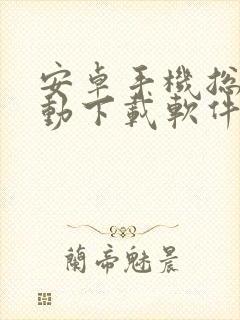 安卓手機總
動下載軟件
蘭帝魅晨